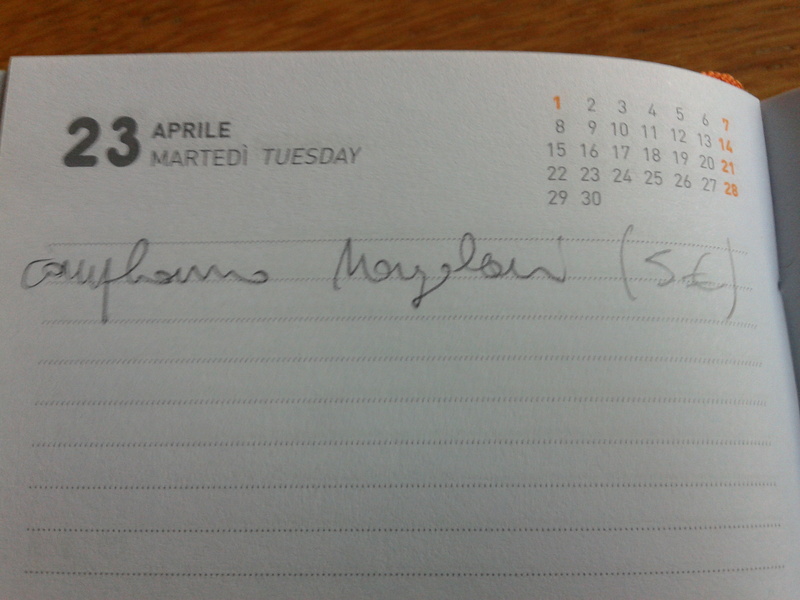 23 APRILE
MARTEDÌ TUESDAY
1 2 3 4 5 6 7
8 9 10 11 12 13 14
15 16 17 18 19 20 21
22 23 24 25 26 27 28
29 30
compleanno (S.E)